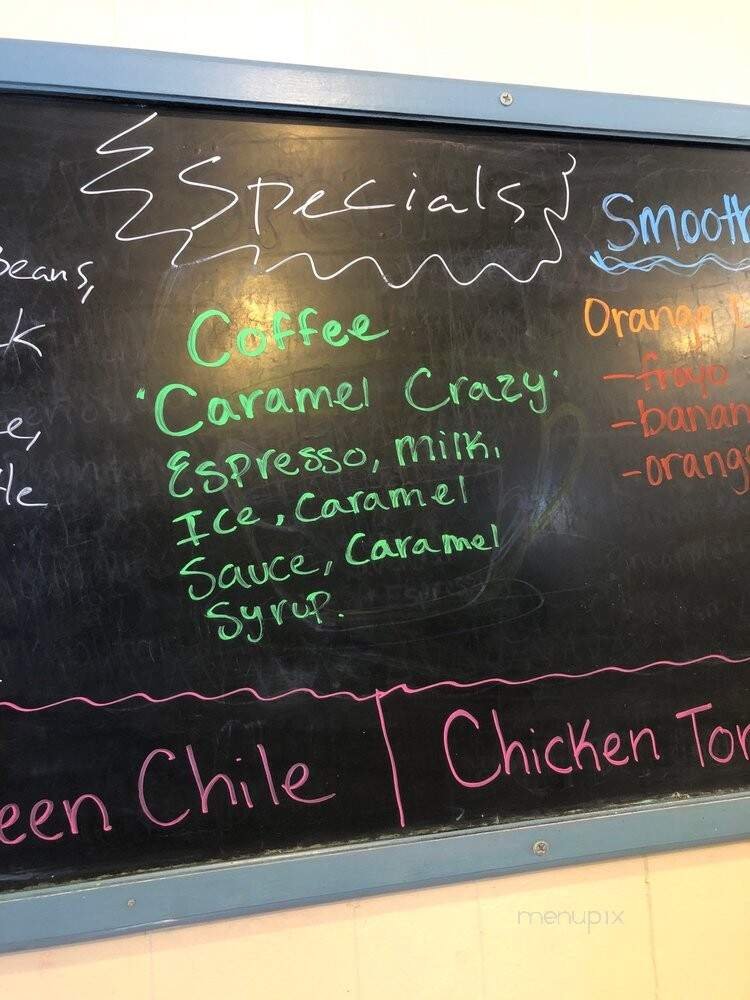 Specials
Beans,
Coffee
"Caramel Crazy"
Espresso, milk,
Ice, Caramel
Sauce, Caramel
Syrup.
Smooth
Orange
- frozo
- banan
- orang
een Chile
Chicken Tor
menupix